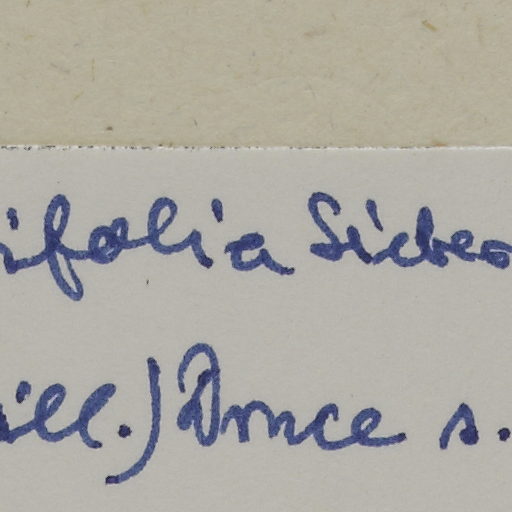 ifolia Sieber
ill.) Druce s.